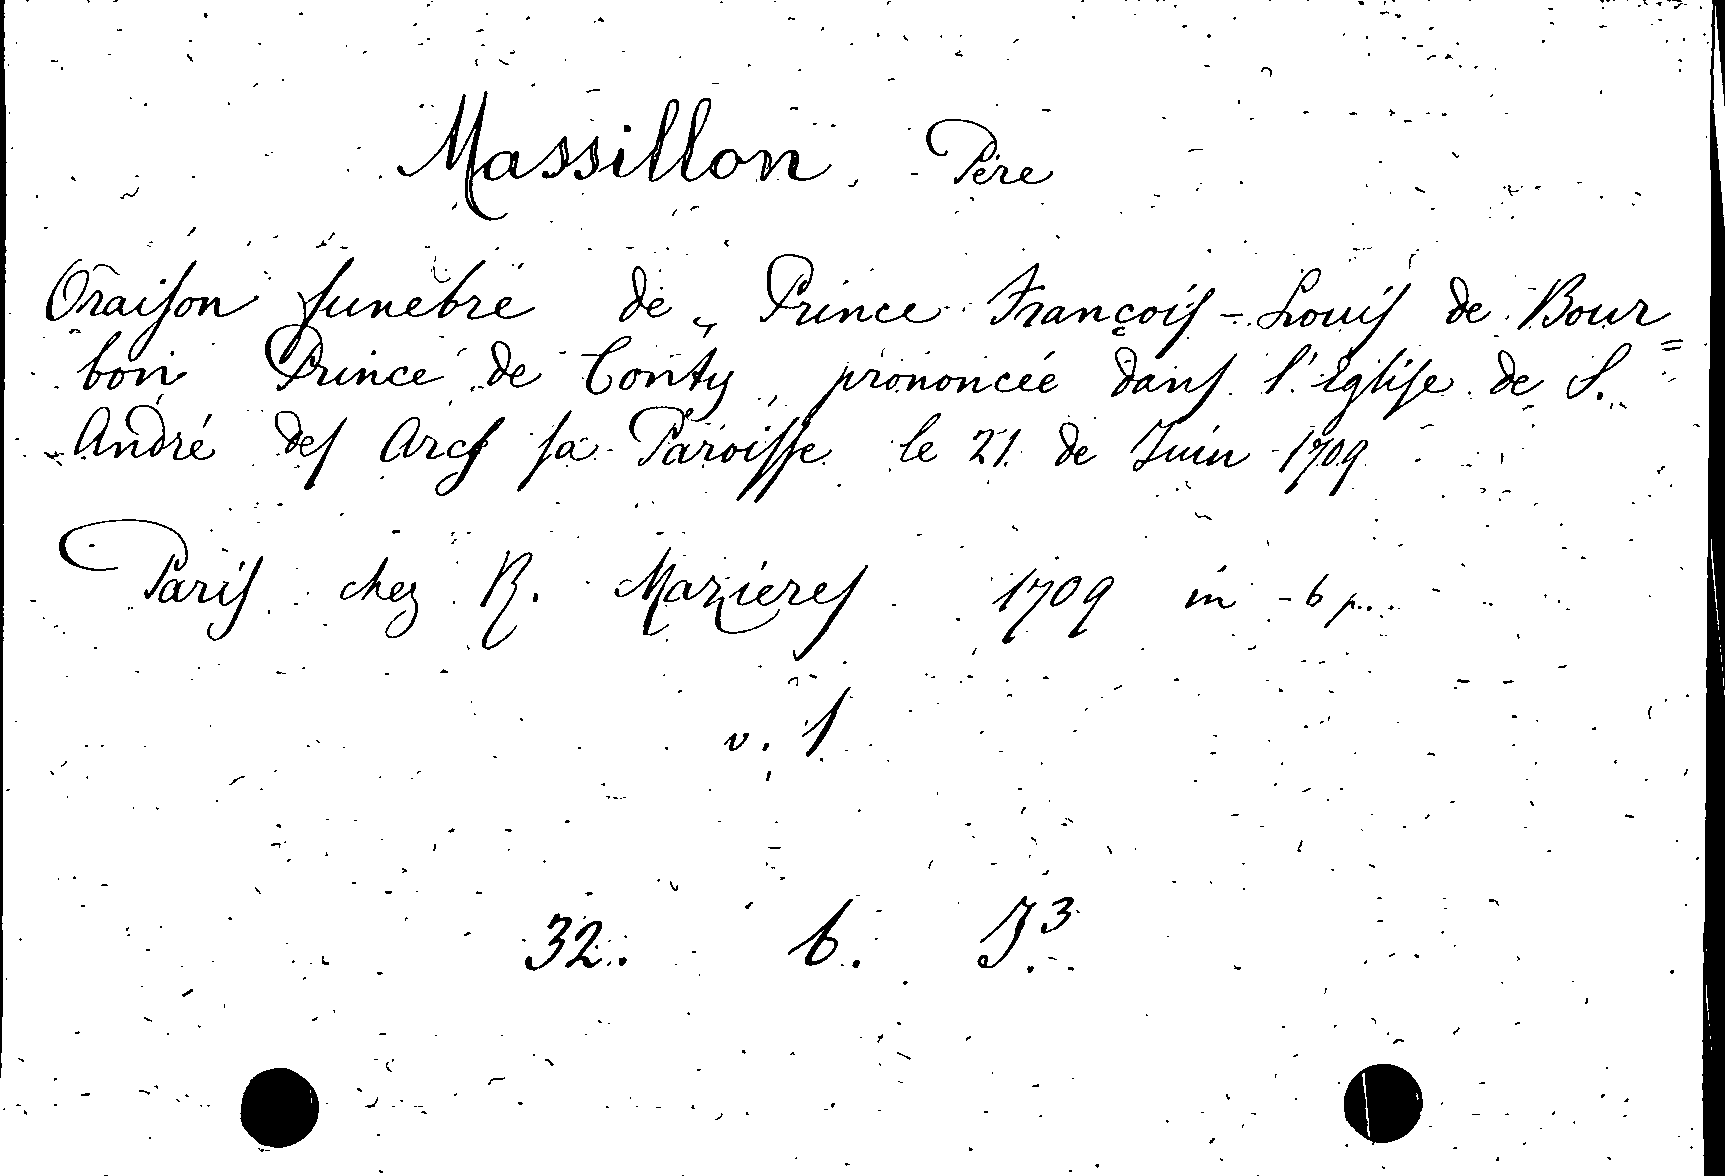 Massillon, Père
Oraison funèbre de, Prince François-Louis de Bour=
bon Prince de Conty, prononcée dans l'Eglise de S.
André des Arcs sa Paroisse le 21. de Juin 1709
Paris chez R. Mazieres 1709 in -6 p.
v. 1
32. 6. J.3